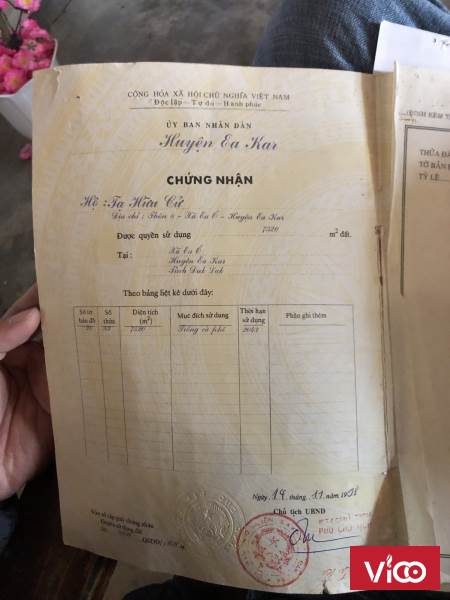 CỘNG HÒA XÃ HỘI CHỦ NGHĨA VIỆT NAM
Độc lập - Tự do - Hạnh phúc
ỦY BAN NHÂN DÂN
Huyện Ea Kar
CHỨNG NHẬN
Hộ : Tạ Hữu Cử
Địa chỉ : Thôn 6 - Xã Ea Ô - Huyện Ea Kar
Được quyền sử dụng 7520 m² đất.
Tại : Xã Ea Ô
Huyện Ea Kar
Tỉnh Đak Lak
Theo bảng liệt kê dưới đây:
Số tờ bản đồ Số thửa Diện tích (m²) Mục đích sử dụng Thời hạn sử dụng Phần ghi thêm
7520 Trồng cà phê 2043
Ngày 14 tháng 11 năm 1998
Chủ tịch UBND
Vào sổ cấp giấy chứng nhận
Quyền sử dụng đất
THỬA ĐẤ
TỜ BẢN
TỶ LỆ
Vico